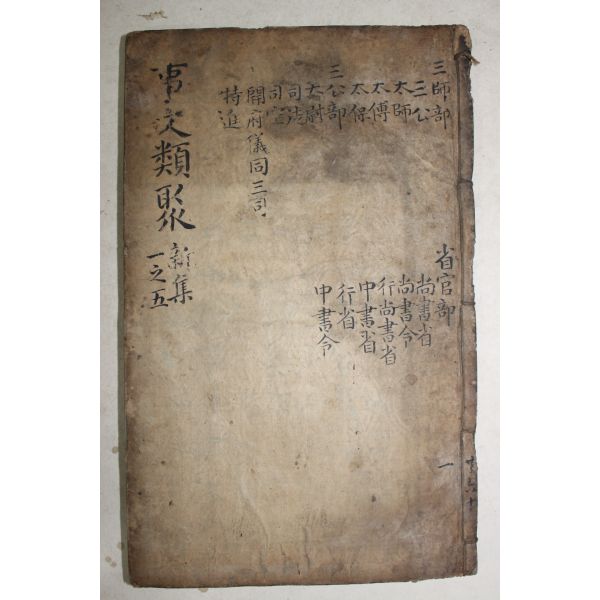 三師部
三公
太師
太傅
太保
三公部
太尉
司徒
司空
開府儀同三司
特進
省官部
尚書省
尚書令
行尚書省
中書省
行省
中書令
事文類聚
新集
一之五
一